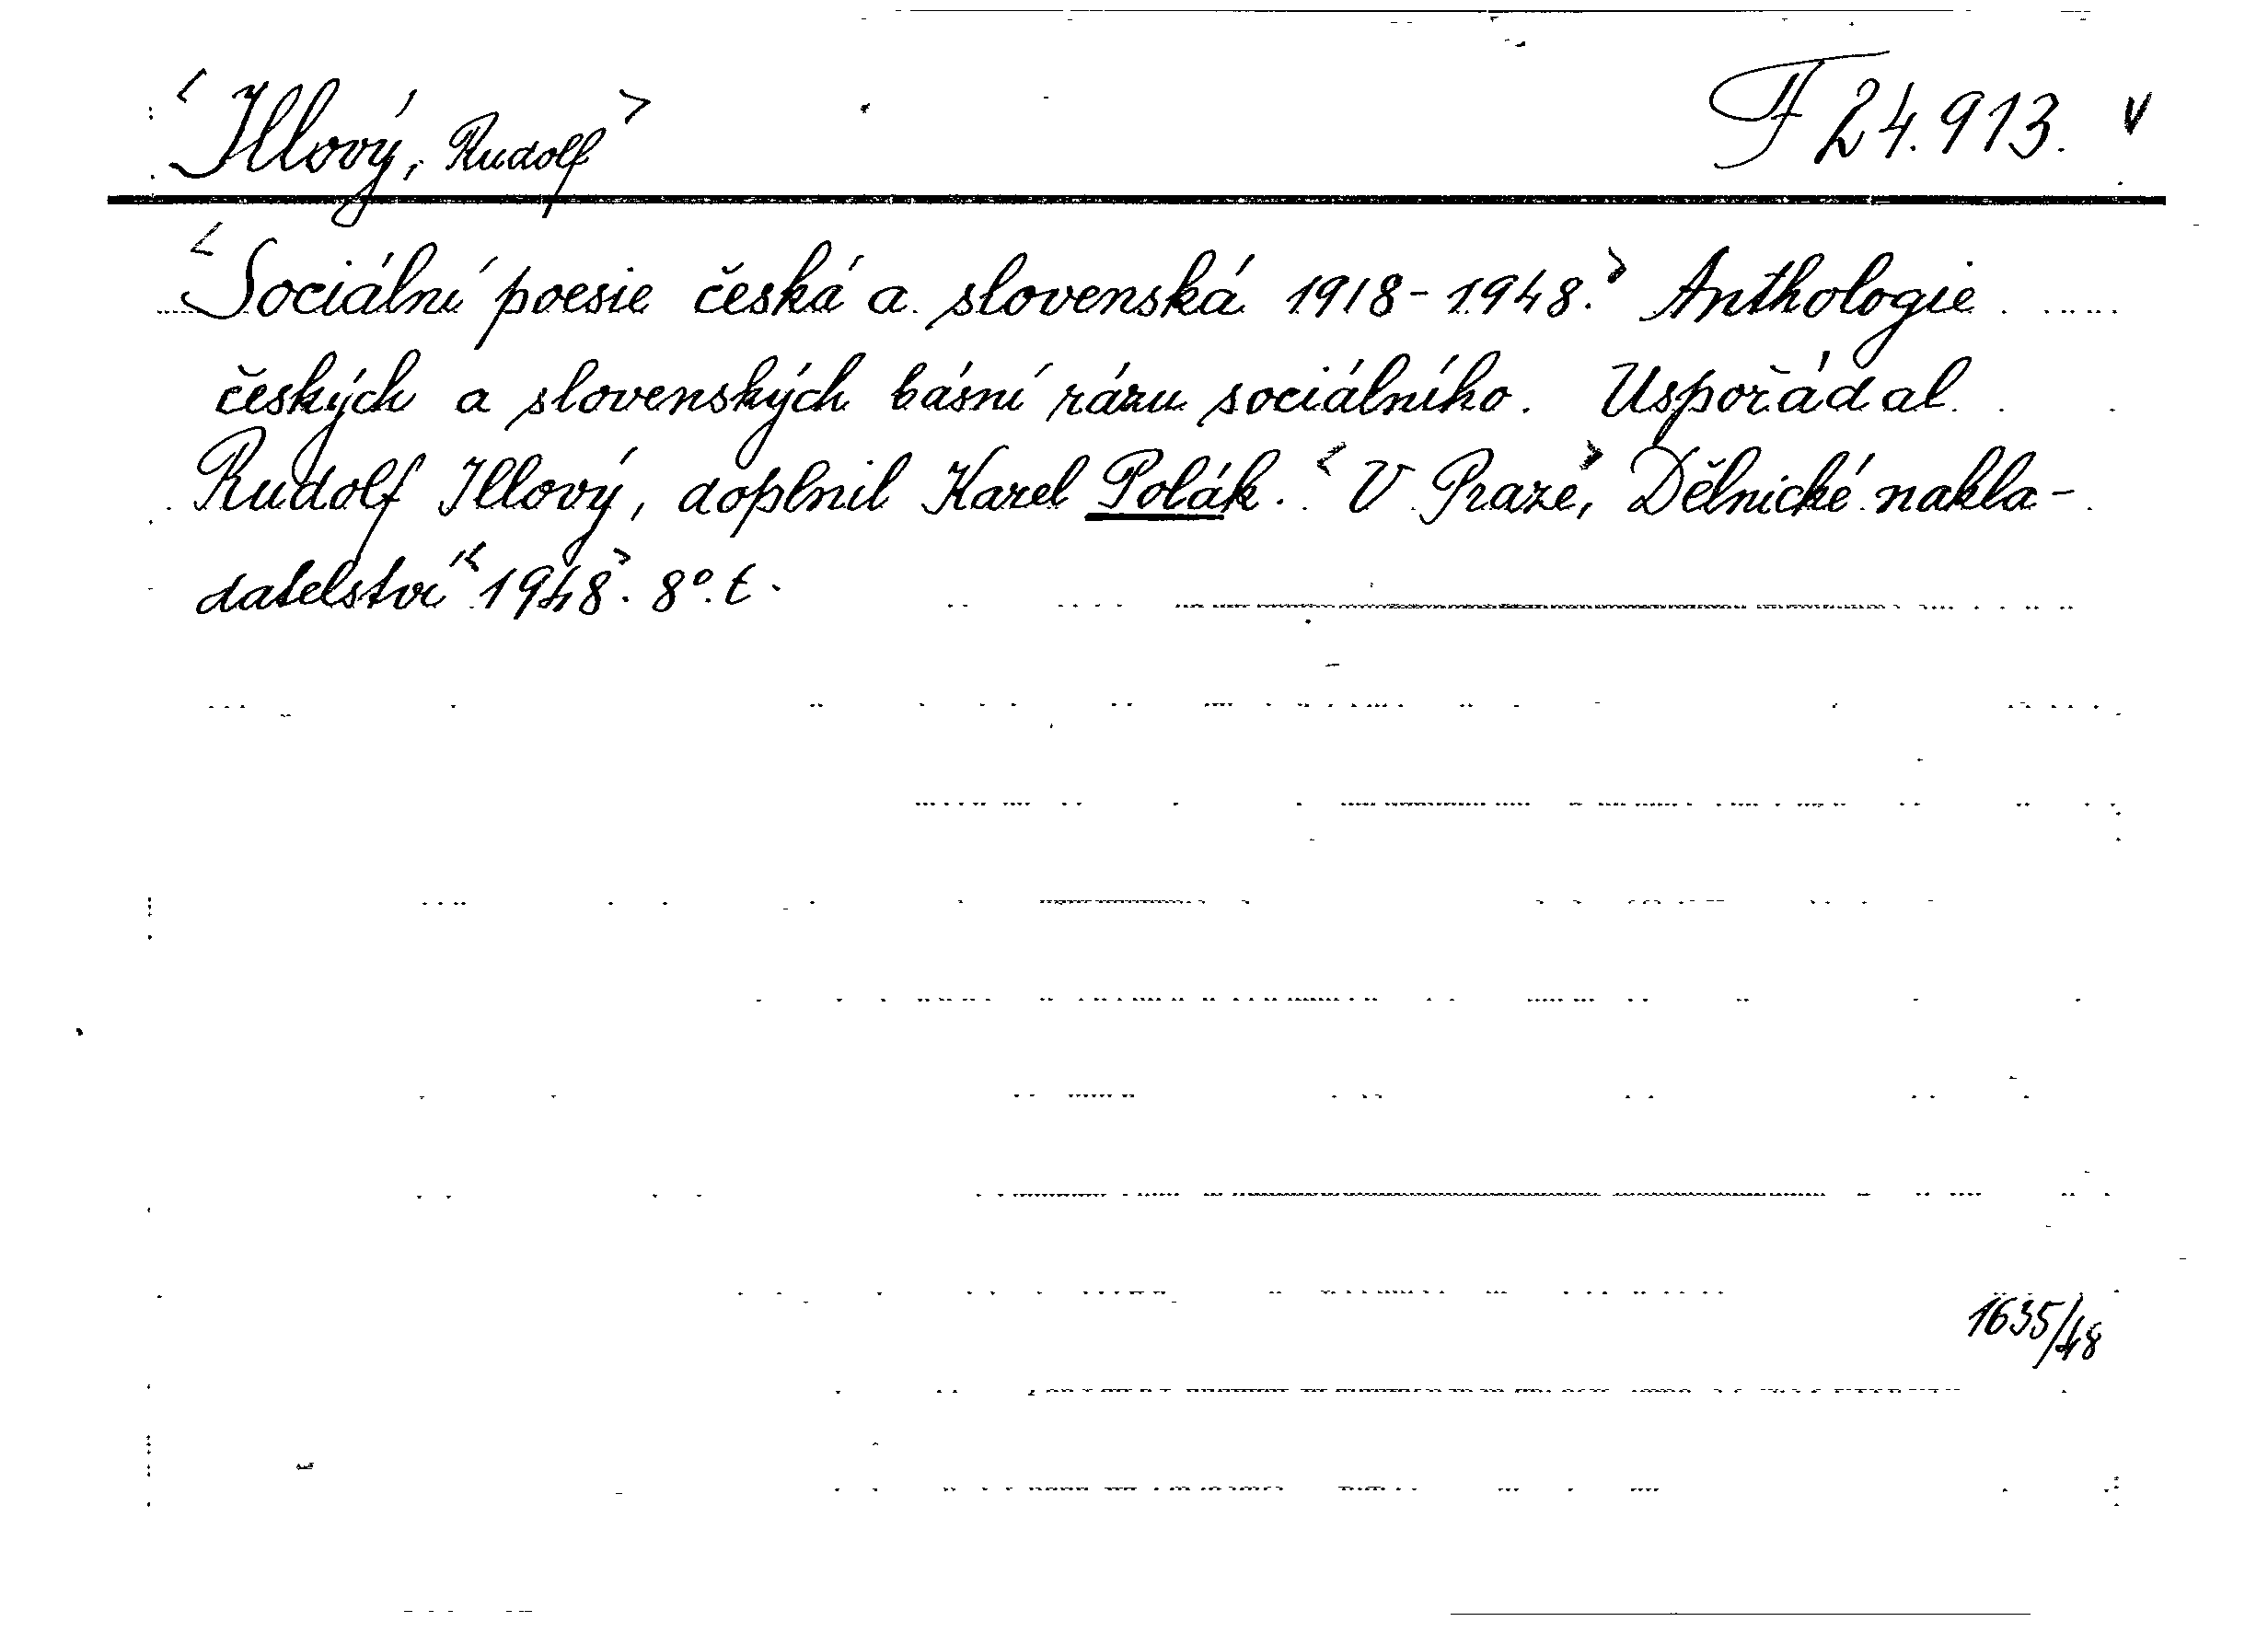 <Illový, Rudolf> F 24.913. v
<Sociální poesie česká a slovenská 1918-1948.> Anthologie
českých a slovenských básní rázu sociálního. Uspořádal
Rudolf Illový, doplnil Karel Polák. <V Praze>, Dělnické nakla-
datelství <1948>. 8°. t.
1635/48